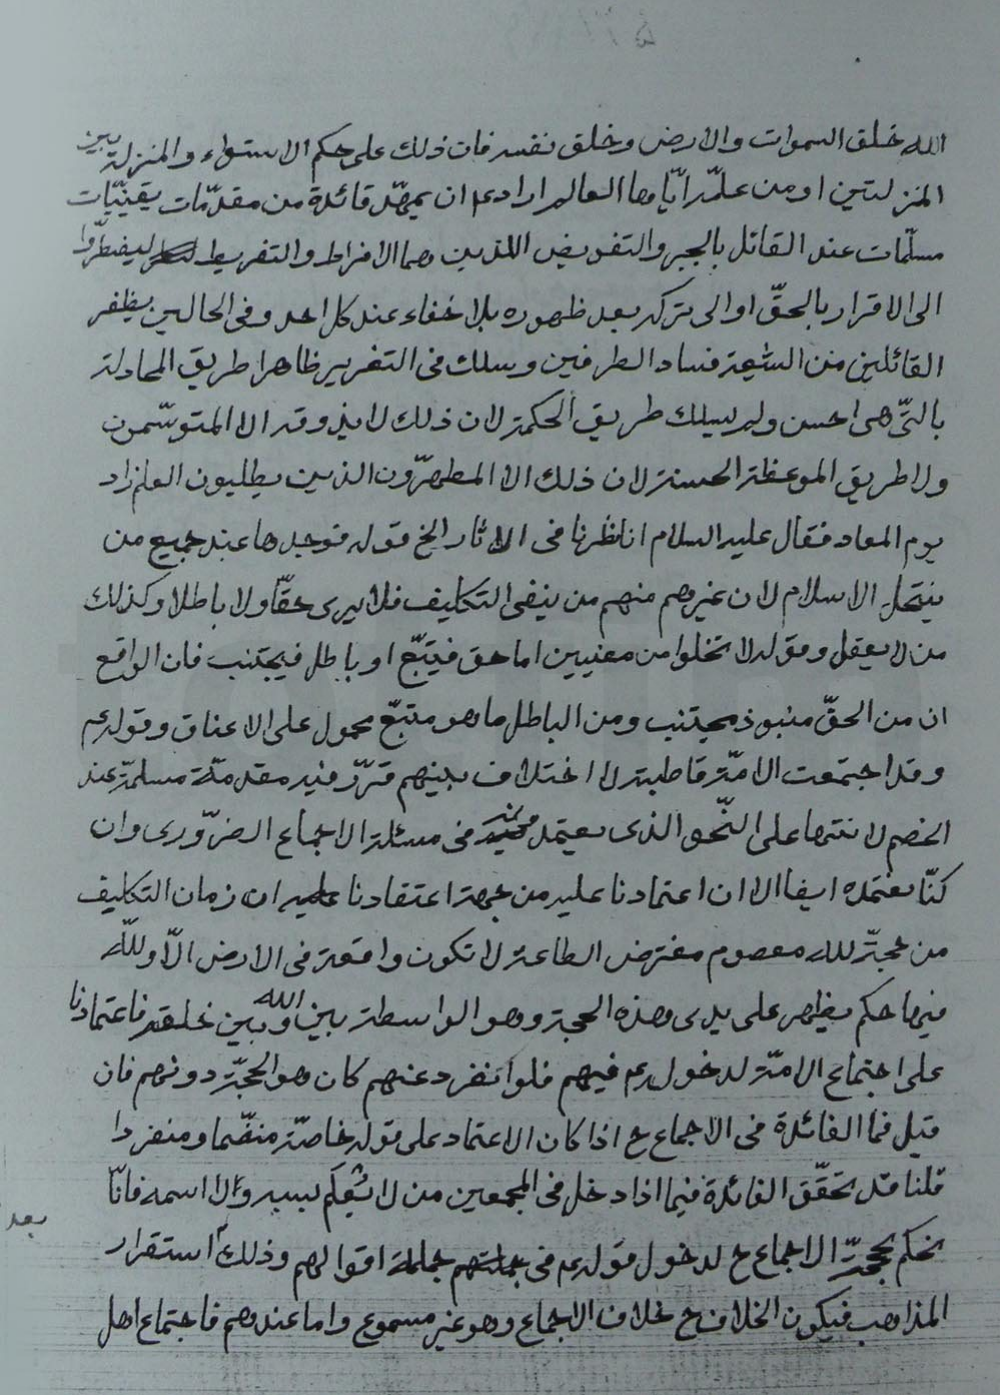 الله خلق السموات والارض وخلق نفسه فان ذلك على حكم الاستواء والمنزلة بين
المنزلتين او من علمه اياها العالم اراد ع ان يمهّد قائدة من مقدّمات يقينيّات
مسلّمات عند القائل بالجبر والتفويض اللذين هما الافراط والتفريط ليضطرّوا
الى الاقرار بالحقّ او الى تركه بعد ظهوره بلا خفاء عند كل احد وفى الحالين يظفر
القائلين من الشيعة فساد الطرفين وسلك فى التقرير ظاهرا طريق المجادلة
بالتّى هى احسن ولم يسلك طريق الحكمة لان ذلك لا يذوقه الا المتوسّمون
ولا طريق الموعظة الحسنة لان ذلك الا المطهّرون الذين يطلبون العلم زاد
يوم المعاد فقال عليه السلام انا نظرنا فى الاثار الخ قوله فوجدها عند جميع من
ينتحل الاسلام لان غيرهم منهم من ينفى التكليف فلا يرى حقّا ولا باطلا وكذلك
من لا يعقل وقوله لا تخلوا من معنيين اما حق فيتبّع او باطل فيجتنب فان الواقع
ان من الحقّ منبوذ مجتنب ومن الباطل ما هو متبّع محمول على الاعناق وقوله ع
وقد اجتمعت الامّة قاطبة لا اختلاف بينهم قرّر فيه مقدمّة مسلمة عند
الخصم لا نتها على النّحو الذى يعتمد فى مسئلة الاجماع الضرّورى وان
كنّا نعتمده ايضا الا ان اعتمادنا عليه من جهة اعتقادنا ان زمان التكليف
من حجّة لله معصوم مفترض الطاعة لا تكون واقعة فى الارض الّا ولله
فيها حكم يظهر على يدى هذه الحجة وهو الواسطة بين الله وبين خلقه فاعتمادنا
على اجتماع الامّة لدخوله ع فيهم فلو انفرد عنهم كان هو الحجّة دونهم فان
قيل فما الفائدة فى الاجماع ح اذا كان الاعتماد على قوله خاصّة منضّما ومنفردا
قلنا قد تحقّق الفائدة فيما اذا دخل فى المجمعين من لا يعلم نسبه ولا اسمه فانّا
نحكم بحجيّة الاجماع ح لدخول قوله ع فى جملة اقوالهم وذلك استقرار
بعد
المذاهب فيكون الخلاف ح خلاف الاجماع وهو غير مسموع واما عندهم فاجتماع اهل